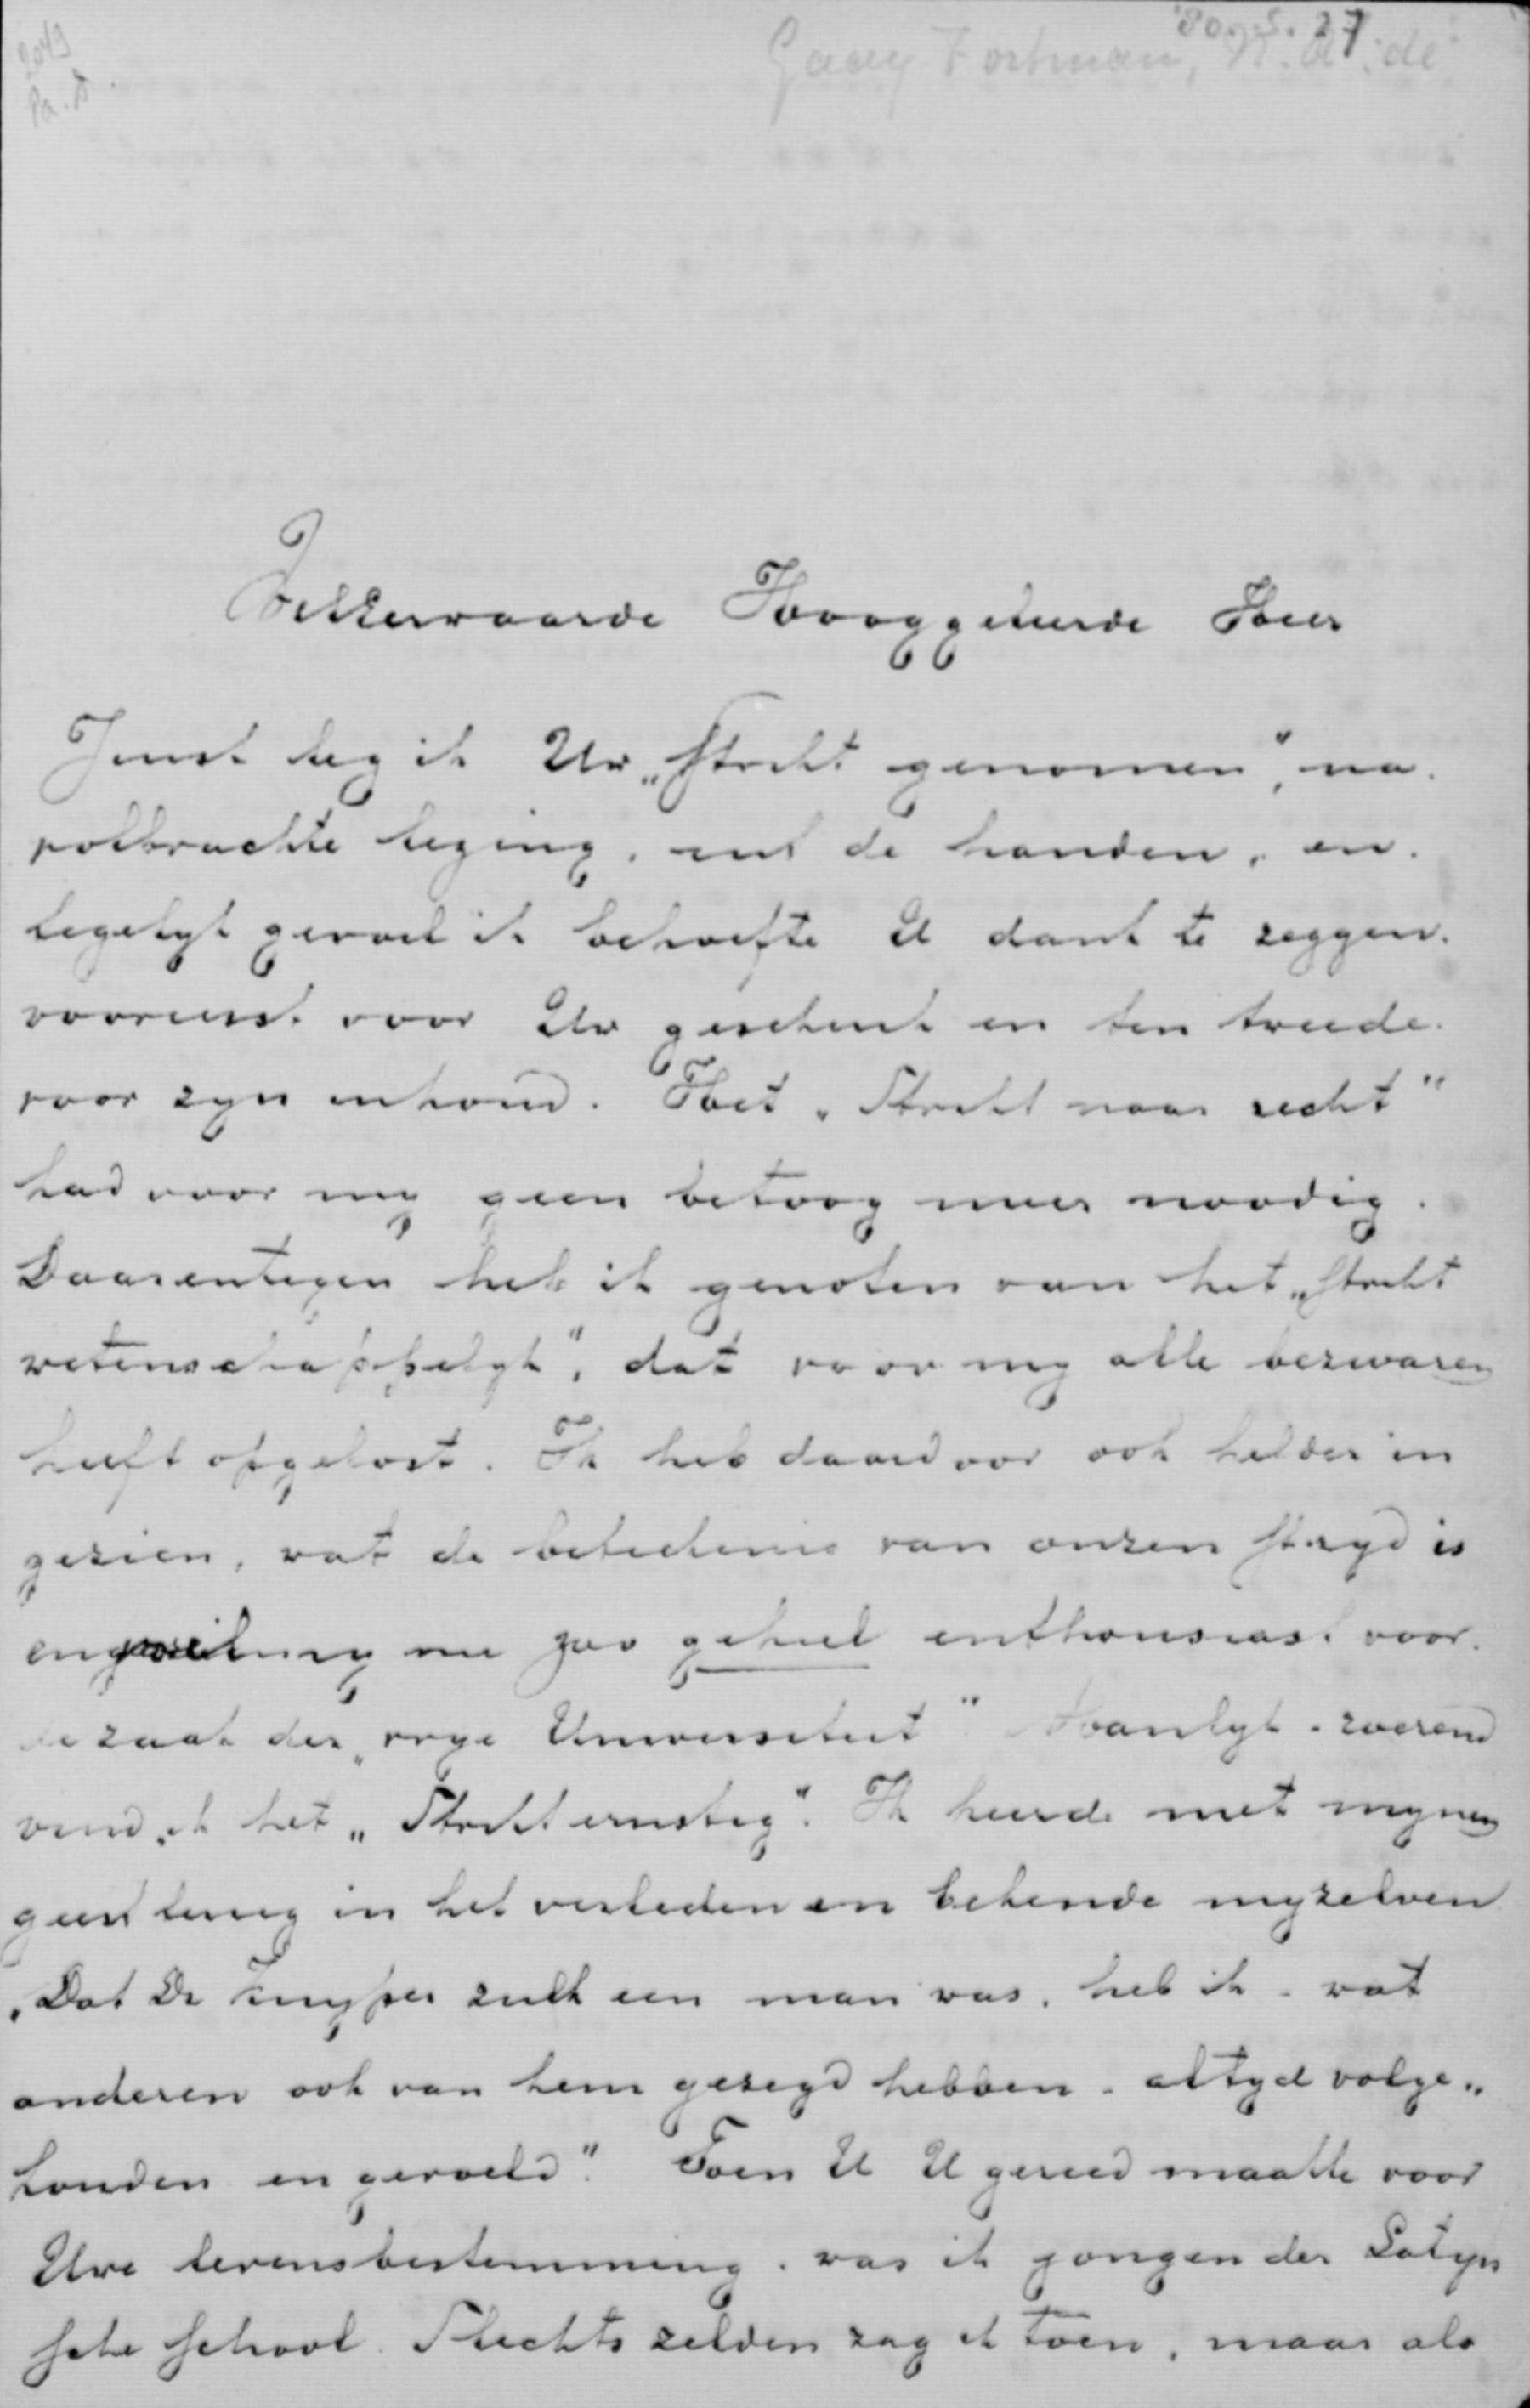 2049
Pa. D.
'80. 5. 27
Gaay Fortman, N. A. de
Zeer waarde Hooggeleerde Heer
Juist leg ik Uw „Strikt genomen", na
volbrachte lezing, uit de handen, en
tegelyk gevoel ik behoefte U dank te zeggen
vooreerst voor Uw geschenk en ten tweede
voor zyn inhoud. Het „Strikt naar recht"
had voor my geen betoog meer noodig.
Daarentegen heb ik genoten van het „Strikt
wetenschappelyk", dat voor my alle bezwaren
heeft opgelost. Ik heb daardoor ook helder in
gezien, wat de beteekenis van onzen stryd is
en my nu gav geheel enthousiast voor
de zaak der „vrye Universiteit"
vind ik het „Strikt ernstig". Ik keerde met mynen
geest terug in het verleden en bekende myzelven
„Dat Dr Kuyper zulk een man was, heb ik - wat
anderen ook van hem gezegd hebben - altyd volge„
houden en gevoeld". Toen U U gereed maakte voor
Uwe levensbestemming, was ik jongen der Latyn
sche school. Slechts zelden zag ik toen, maar als